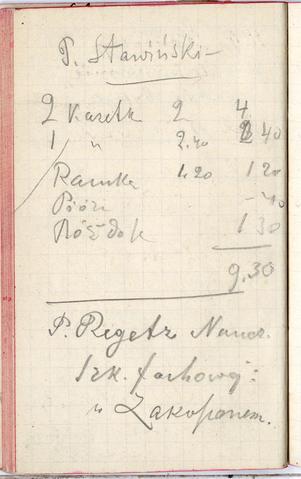 P. Stawiński
2 Karetk 2 4
1 " 2.40 2 40
Ramka 1.20 1 20
Pióri - 40
1 30
9.30
P. Regetz Naucz.
Szk. fachowej:
w Zakopanem.